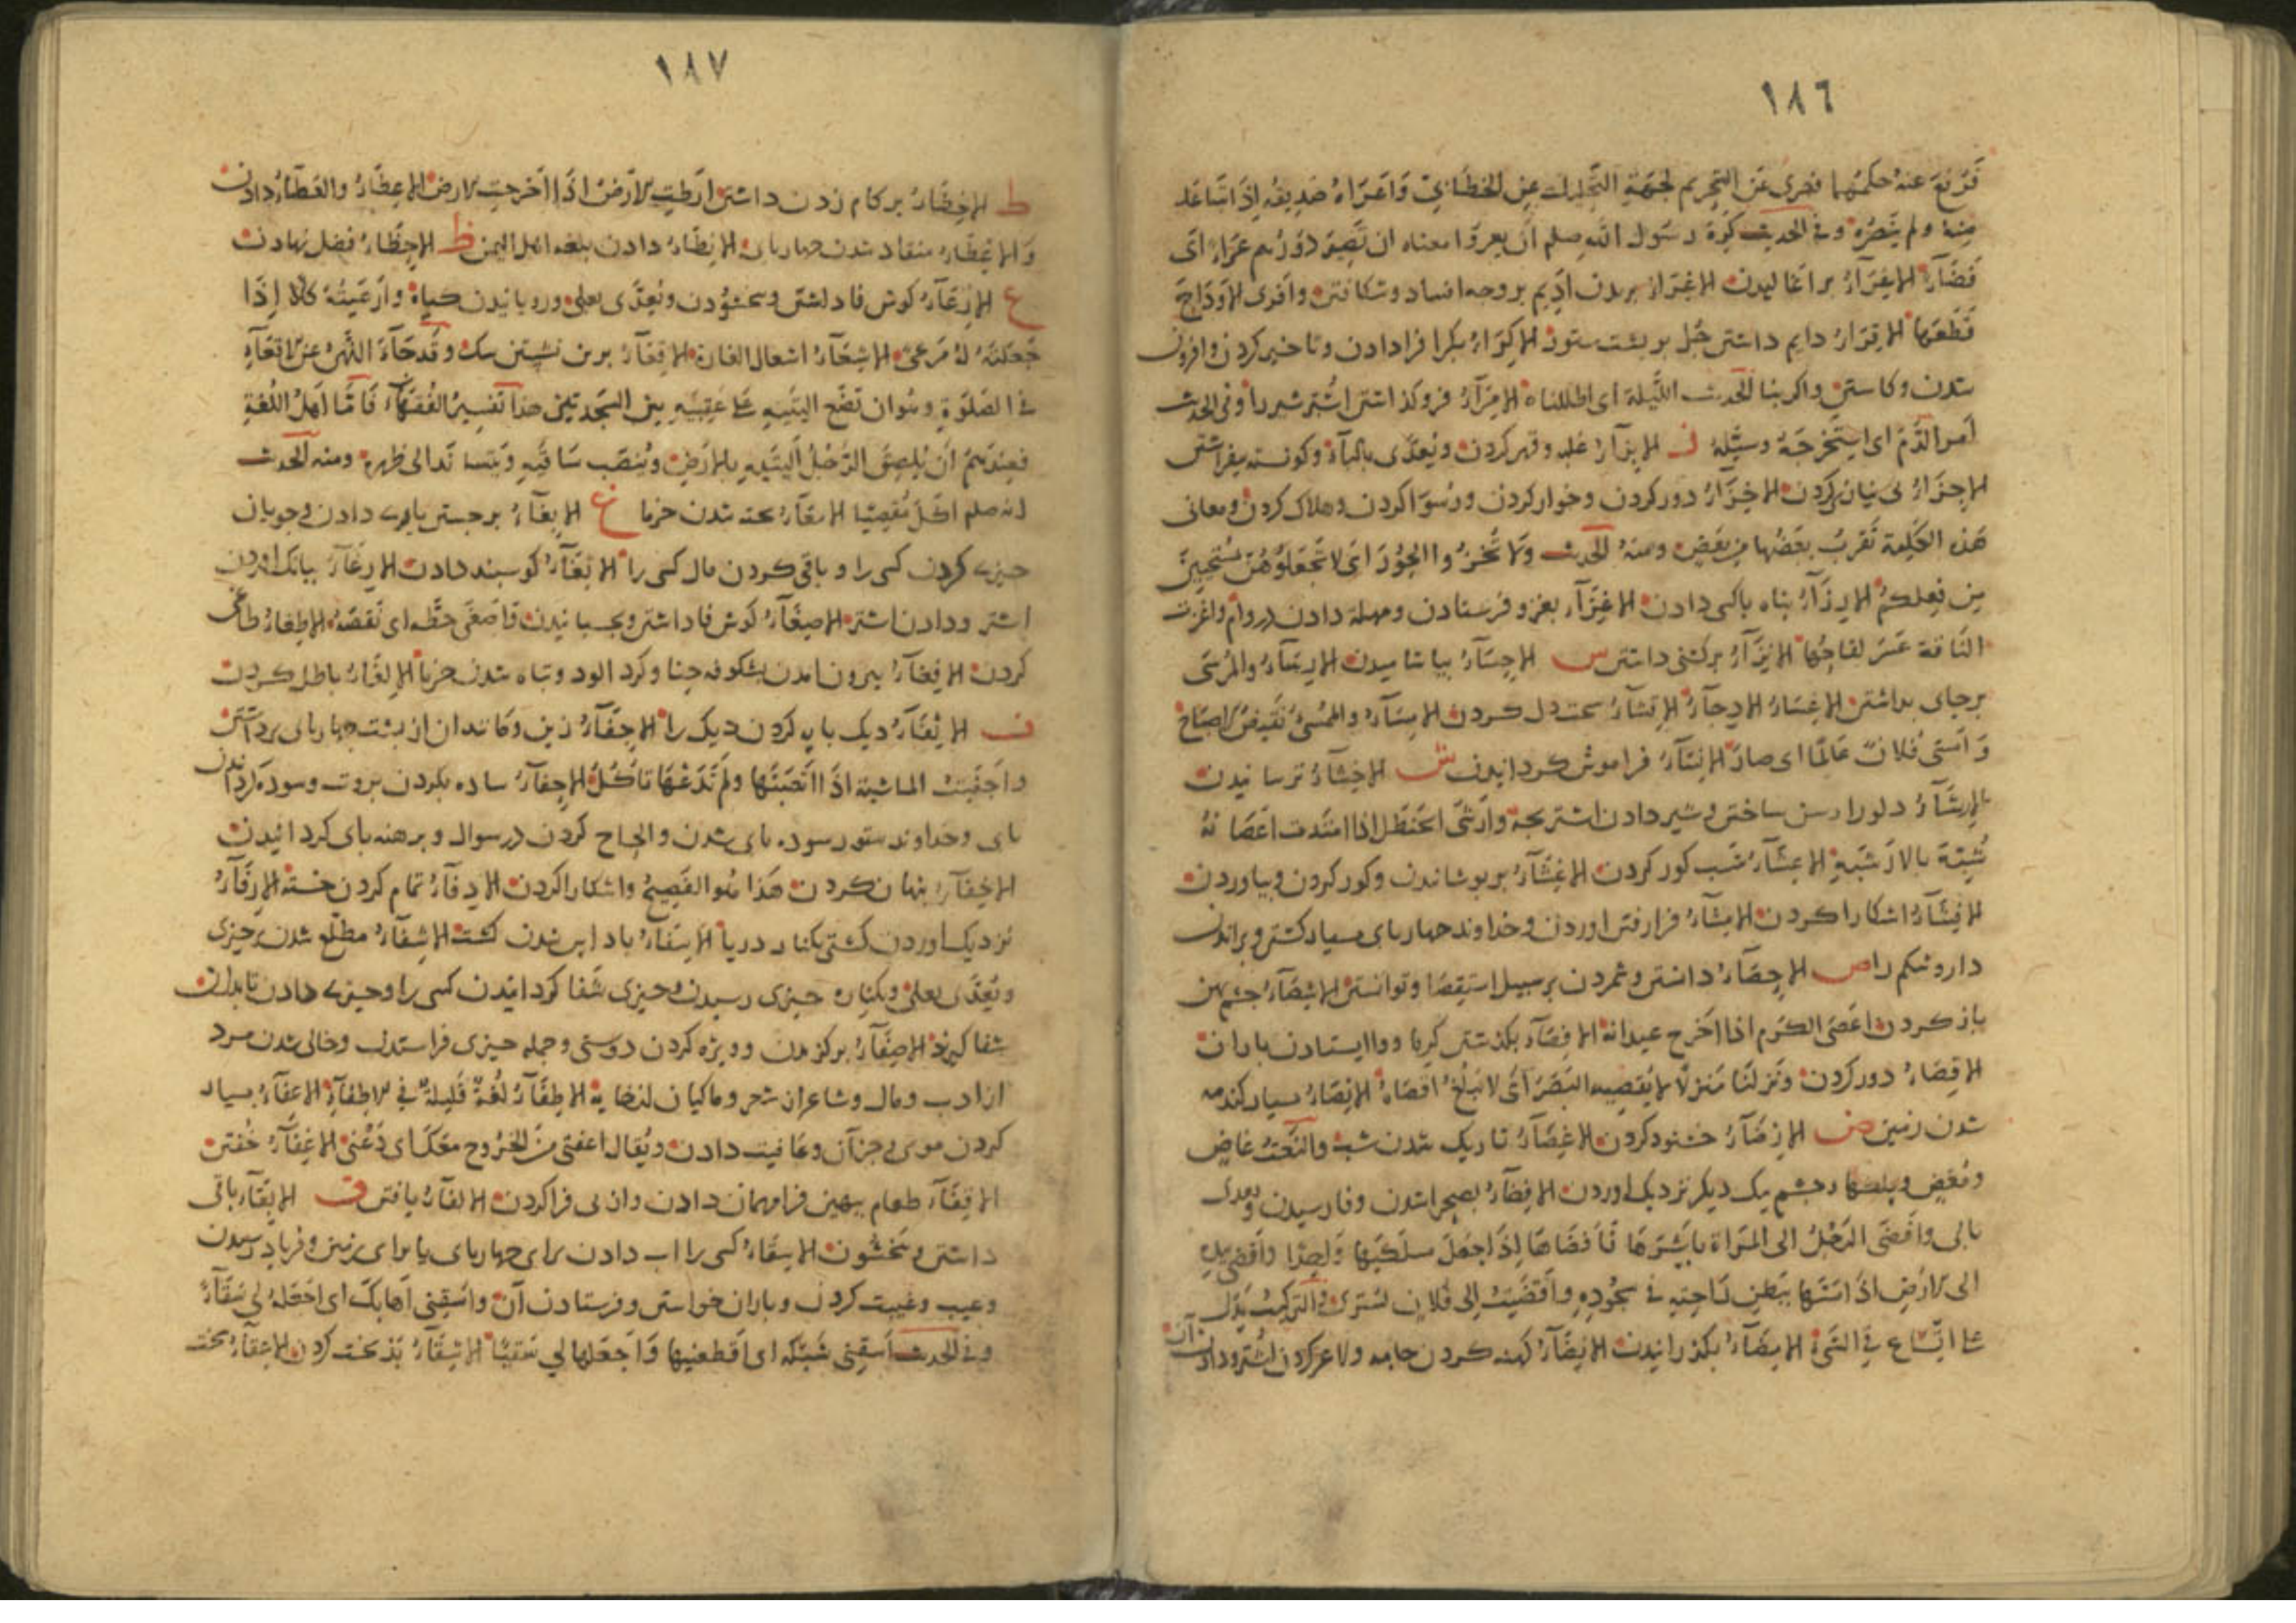 ١٨٦
منه ولم ينصره وفي الحديث كره رسول الله صلعم ان يعروا معناه ان تصير دورهم عراء اى
الافراز بريدن اديم بروجه افساد وشكافتن وافرى الاوداج
قطعها دايم داشتن جل بر پشت ستور الاكراء بكرا فرادادن وتاخير كردن وافزون
شدن وكاستن واكرينا الحديث الليلة اى اطلناه الامراء فروكذاشتن اشتر شير را وفي الحديث
امر الدم اى استخرجه وسيله ز الابزاء غلبه وقهر كردن ويعدى بالباء
الاجزاء بى نياز كردن الاخزاء دور كردن وخوار كردن ورسوا كردن وهلاك كردن ومعانى
هذه الكلمة تقرب بعضها من بعض ومنه الحديث ولا تخزوا الحور اى لا تجعلوهن مستحيين
من فعلكم الارزاء پناه باكسى دادن الاغزاء بغزو فرستادن ومهلة دادن در وام واغزت
الناقة عسر لقاحها الانزاء بركشنى داشتن س الاحساء بياشاميدن الارساء والمرسى
برجاى بداشتن الاغساء الادجاء الاقساء سخت دل كردن الامساء والممسى نقيض الاصباح
وامسى فلان عالما اى صار الانساء فراموش كردانيدن ش الاخشاء ترسانيدن
الارشاء دلو را رسن ساختن وشير دادن اشتر بچه وارشى الحنظل اذا امتدت اغصانه
شبيهة بالارشية الاعشاء شب كور كردن الاغشاء بر پوشاندن وكور كردن وبياوردن
الافشاء اشكارا كردن الامشاء فرا رفتن اوردن وخداوند چهارپاى بسيار كشتن وبراندن
دارو شكم را ص الاحصاء دانستن وشمردن بر سبيل استقصا وتوانستن الاشصاء چشم پهن
باز كردن اعصى الكرم اذا اخرج عيدانه الافصاء بكذشتن كرما ووا ايستادن باران
الاقصاء دور كردن ونزلنا منزلا لا يقصيه البصر اى لا يبلغ اقصاه الانصاء بسيار كندمه
شدن زمين ض الارضاء خشنود كردن الاغضاء تاريك شدن شب والنعت غاض
ومغض وپلكها چشم يك ديكر نزديك اوردن الافضاء بصحرا شدن وفا رسيدن ويعدى
بالى وافضى الرجل الى المراة باشرها وافضاها اذا جعل مسلكيها واحدا وافضى بيده
الى الارض اذا مسها ببطن راحته في سجوده وافضيت الى فلان بسرى والتركيب يدل
على اتساع في الشىء الامضاء بكذرانيدن الانضاء كهنه كردن جامه ولاغر كردن اشتر ودادن آن
١٨٧
ط الاخطاء بر كام زدن داشتن ارطت الارض اذا اخرجت الارض الاعطاء والعطاء دادن
والاعطاء منقاد شدن چهارپاى الانطاء دادن بلغة اهل اليمن ظ الاحظاء فضل نهادن
ع الارعاء كوش فا داشتن وبخشودن ويعدى بعلى ورويانيدن كياه وارعيته كلا اذا
جعلته له مرعى الاشعاء اشعال الغارة الاقعاء بر سرين نشستن سك وقد جاء النهى عن الاقعاء
في الصلوة وهو ان تضع اليتيه على عقبيه بين السجدتين هذا تفسير الفقهاء فاما اهل اللغة
فعندهم ان يلصق الرجل اليتيه بالارض وينصب ساقيه ويتساند الى ظهره ومنه الحديث
انه صلعم اكل مقعيا الامعاء پخته شدن خرما غ الابغاء برجستن يارى دادن وجويان
چيزى كردن كسى را وباقى كردن مال كسى را الاثغاء كوسپند دادن الارغاء ببانك اوردن
اشتر ودادن اشتر الاصغاء كوش فا داشتن وبچسبانيدن واصغى حظه اى نقصه الاطغاء طاغى
كردن الافغاء بيرون امدن شكوفه حنا وكرد الود وتباه شدن خرما الالغاء باطل كردن
ف الاثفاء ديك پايه كردن ديك را الاجفاء زين وماند آن از پشت چهارپاى برداشتن
واجفيت الماشية اذا اتعبتها ولم تدعها تاكل الاحفاء ساده بكردن بروت وسوده كردانيدن
پاى وخداوند ستور سوده پاى شدن والحاح كردن در سوال وبرهنه پاى كردانيدن
الاخفاء پنهان كردن هذا هو الفصيح واشكارا كردن الادفاء تمام كردن خسته الارفاء
نزديك اوردن كشتى بكنار دريا الاسفاء باد ابن شدن كشت الاشفاء مطلع شدن بر چيزى
ويعدى بعلى وبكناره چيزى رسيدن وچيزى شفا كردانيدن كسى را وچيزى دادن تا بدان
شفا كيرند الاصفاء بركزيدن وويژه كردن دوستى وجمله چيزى فرا ستدن وخالى شدن مرد
از ادب ومال وشاعر از شعر وماكيان از خايه الاطفاء لغة قليلة في الاطفاء الاعفاء بسيار
كردن موى وجز آن وعافيت دادن ويقال اعفنى من الخروج معك اى دعنى الاغفاء خفتن
الاقفاء طعام بهين فرا مهمان دادن واز پى فرا كردن الالفاء يافتن ق الابقاء باقى
داشتن وبخشودن الاسقاء كسى را اب دادن براى چهارپاى يا براى زمين وفرياد رسيدن
وعيب وغيبت كردن وباران خواستن وفرستادن آن واسقنى اهابك اى اجعله لى سقاء
وفي الحديث اسقنى شبكة اى اقطعنيها واجعلها لى سقيا الاشقاء بدبخت كردن